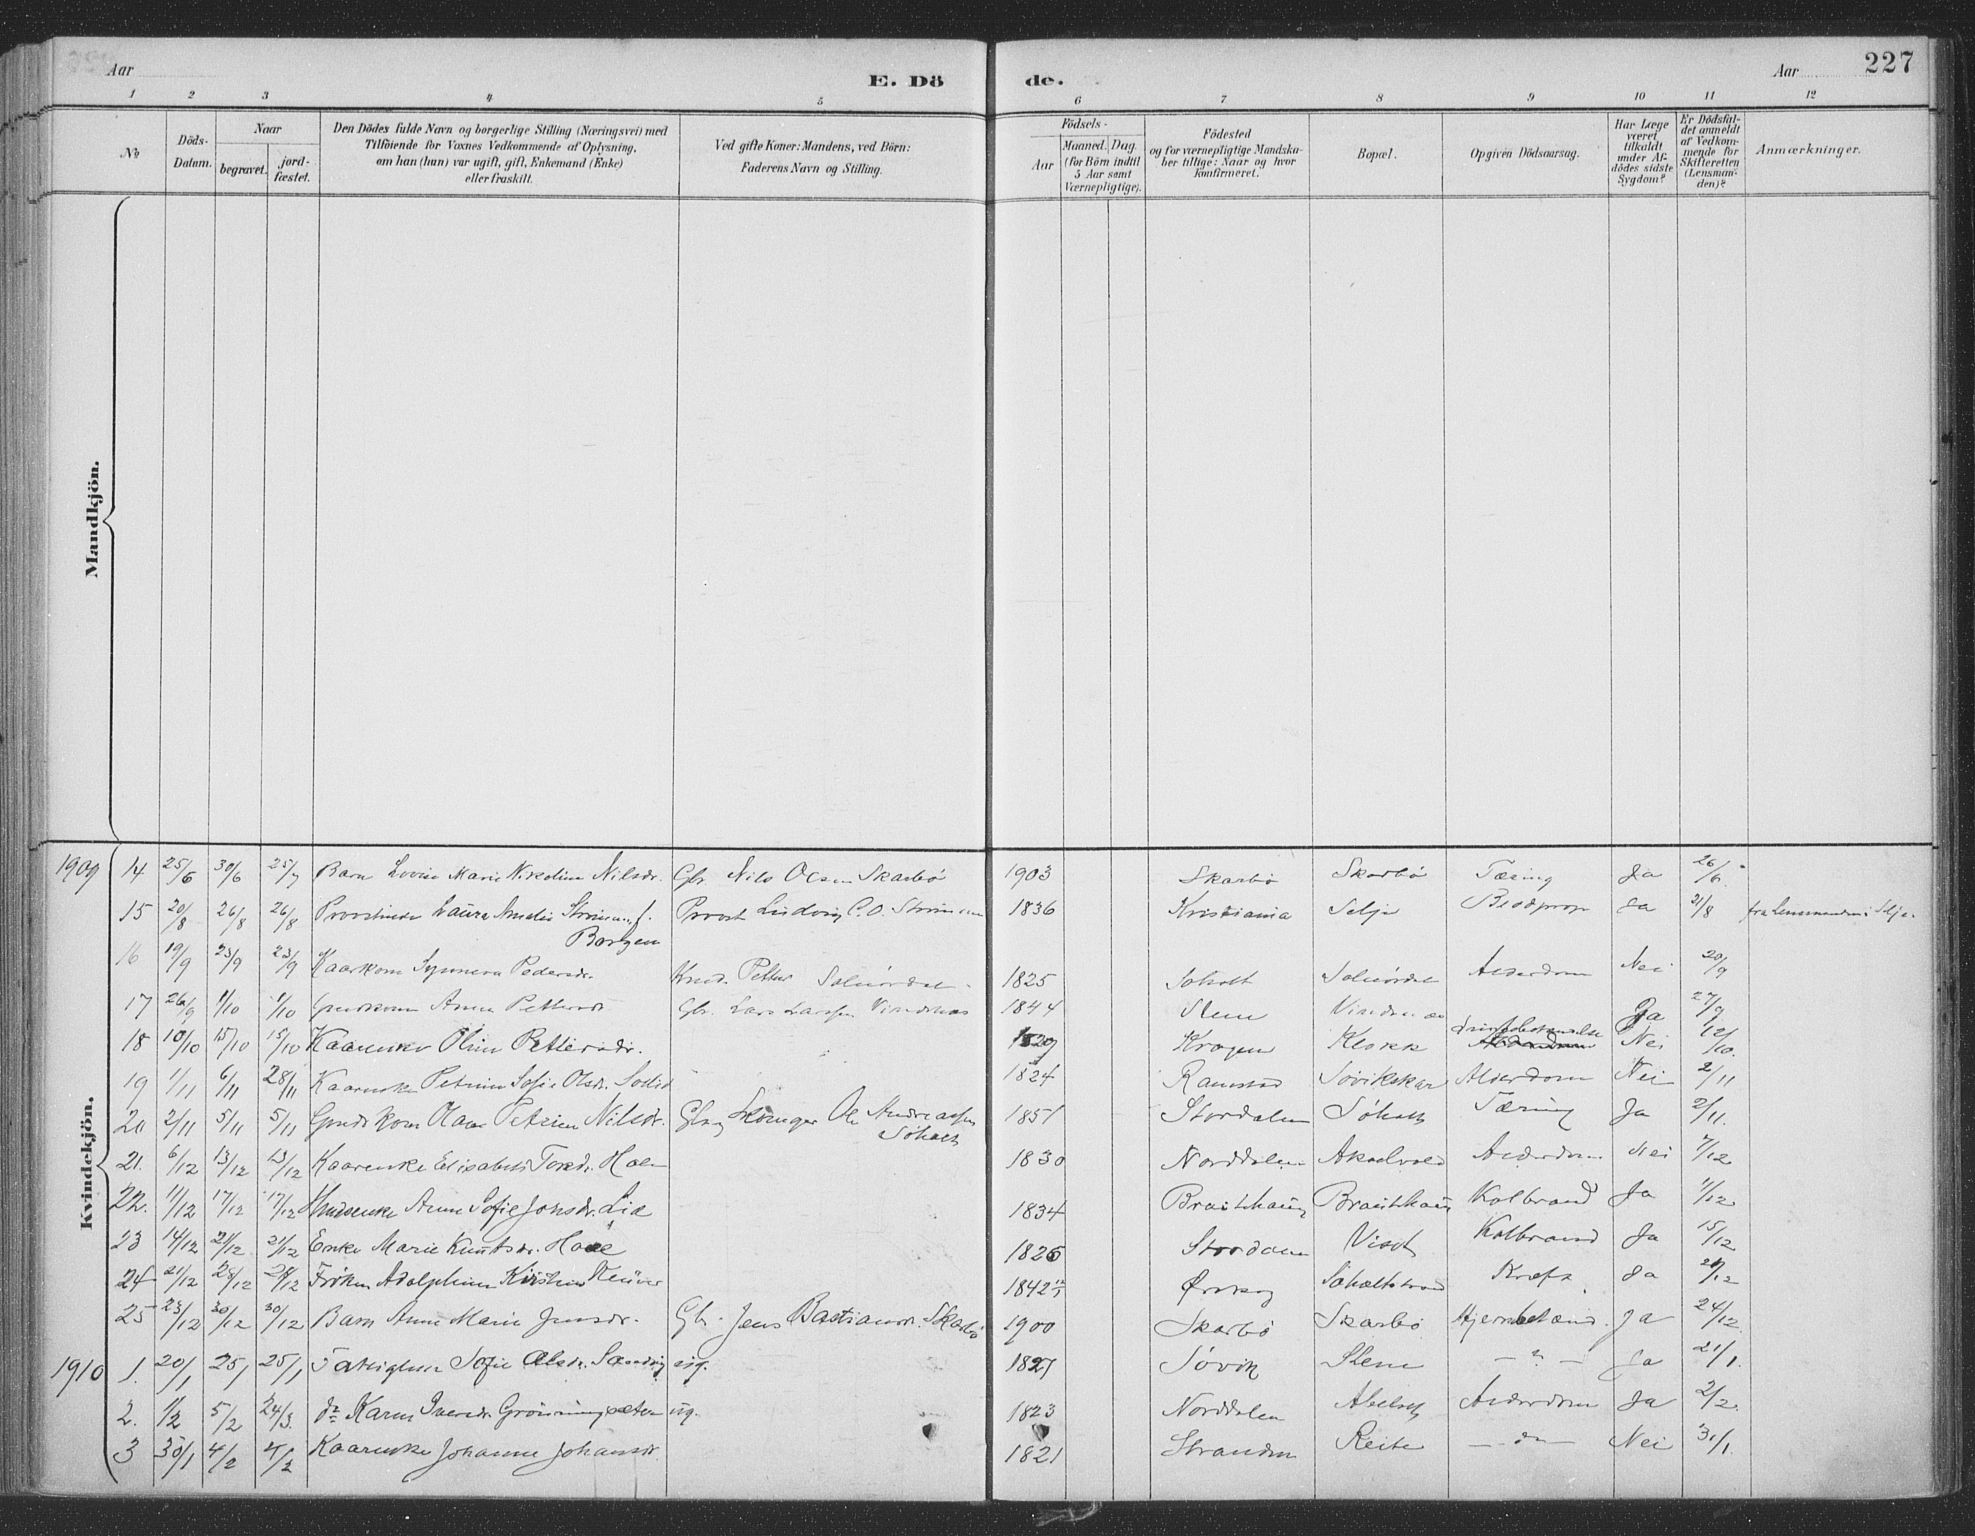 Aar E. Dö de. Aar 227
1 2 3 4 5 6 7 8 9 10 11 12
No Döds-Datum. Naar begravet. jord-fæstet. Den Dödes fulde Navn og borgerlige Stilling (Næringsvei) med Tilföiende for Voxnes Vedkommende af Oplysning, om han (hun) var ugift, gift, Enkemand (Enke) eller fraskilt. Ved gifte Koner: Mandens, ved Börn: Faderens Navn og Stilling. Födsels- Aar Maaned. Dag. (for Börn indtil 5 Aar samt Værnepligtige). Födested og for værnepligtige Mandskaber tillige: Naar og hvor konfirmeret. Bopæl. Opgiven Dödsaarsag. Har Læge været tilkaldt under Afdödes sidste Sygdom? Er Dödsfaldet anmeldt af Vedkommende for Skifteretten (Lensmanden)? Anmærkninger.
Mandkjön.
Kvindekjön.
1909 14 25/6 30/6 25/7 Barn Marie Nikoline Nilsdr. Gbr. Nils Olsen Skarbö 1903 Skarbö Skarbö Tæring Ja 26/6
15 20/8 26/8 26/8 Provstinde Laura Amalie f. Borgen Provst Ludvig C. O. 1836 Kristiania Selje Blodprop Ja 21/8 fra Lensmanden i Selje.
16 19/9 23/9 23/9 Kaarkone Synneva Pedersdr. Knud Petter Solnördal 1825 Soholt Solnördal Alderdom Nei 20/9
17 26/9 1/10 1/10 Gaardkone Anne Pettersdr. Gbr. Lars Larssen Vindsnæs 1844 Stene Vindsnæs Ja 27/9
18 10/10 15/10 15/10 Kaarenke Oline Pettersdr. 1829 Krogen Klokk Nei 12/10.
19 1/11 6/11 28/11 Kaarenke Petrine Sofie Olsdr. 1824 Ramstad Sövikskar Alderdom Nei 2/11
20 2/11 5/11 5/11 Gaardkone Olave Petrine Nilsdr. Gbr. Ole Andreassen Söholt 1851 Stordalen Söholt Tæring Ja 2/11.
21. 6/12 13/12 13/12 Kaarenke Elisabeth Hole 1830 Norddalen Alderdom Nei 7/12
22. 11/12 17/12 17/12 Husenke Anne Sofie Jonsdr. Lid 1834 Brautehaug Brautehaug Kolbrand Ja 11/12
23 14/12 21/12 21/12 Enke Marie Knutsdr. Hole 1826 Stordalen Viset Kolbrand Ja 15/12
24 21/12 28/12 28/12 Fröken Adolphine Kirstine 1842 Ørskog Söholtstrand Kræft Ja 21/12
25 23/12 30/12 30/12 Barn Anne Marie Jensdr. Gbr. Jens Bastiansen Skarbö 1900 Skarbö Skarbö Hjernebetænd. Ja 24/12.
1910 1. 20/1 25/1 25/1 Fattiglem Sofie Olsdr. Sandvig ug. 1827 Sövik Stene — " — Ja 21/1.
2. 1/2 5/2 24/3. do Karen Iversdr. Grönningsæter ug. 1823 Norddalen Abelset Alderdom Ja 2/2.
3 30/1 4/2 4/2 Kaarenke Johanne Johansdr. 1821 Stranden Reite — do — Nei 31/1.